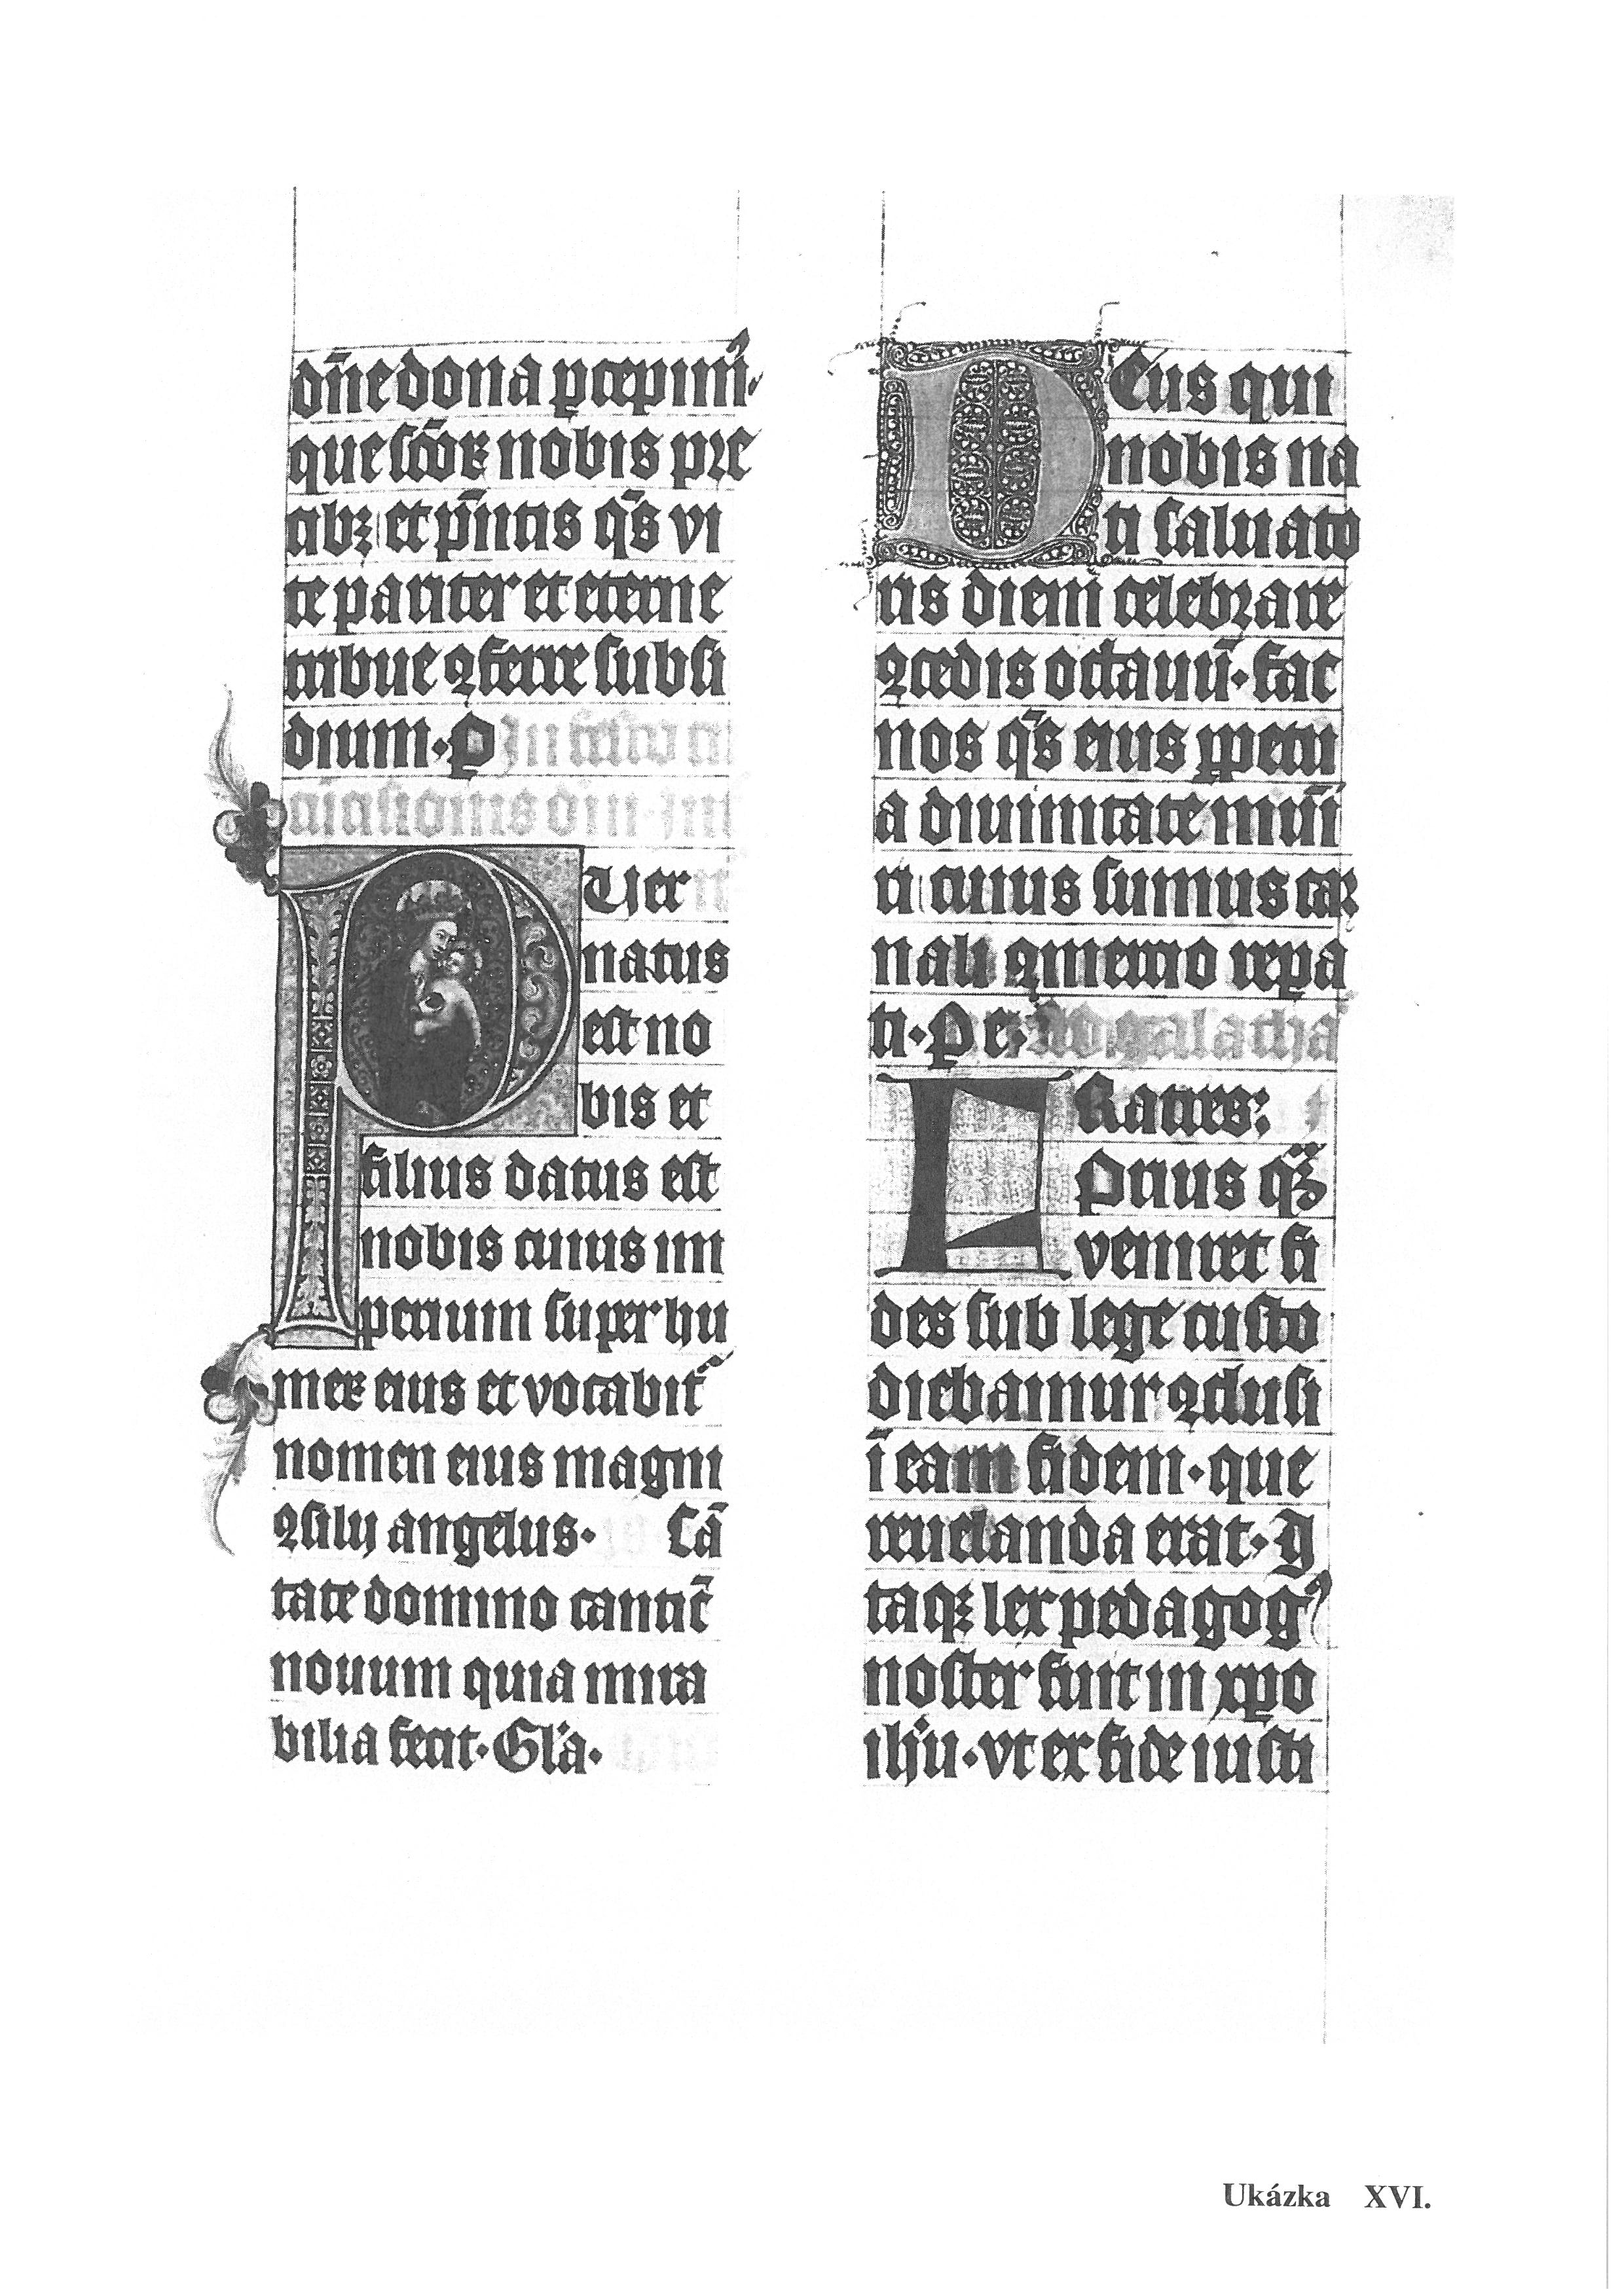 dn̄e dona ꝑcepim⁹.
que sc̄oꝝ nobis pre
cibꝫ et p̄ntis q̄s vi
te pariter et eterne
tribue ꝯferre subsi
dium. P In festo cir
cūcisionis dn̄i.
PUer
natus
est no
bis et
filius datus est
nobis cuius im
perium super hu
meꝝ eius et vocabit᷑
nomen eius magni
ꝯsilij angelus. Cā
tate domino cantic̄
nouum quia mira
bilia fecit. Gl̄a.
DEus qui
nobis na
ti saluato
ris diem celebrare
ꝯcedis octauū. fac
nos q̄s eius ꝑpetu
a diuinitate mūi
ri cuius sumus car
nali ꝯmercio repa
ti. Per. Ad galatha
FRatres:
Prius qͣꝫ
veniret fi
des sub lege custo
diebamur ꝯclusi
ī eam fidem. que
reuelanda erat. I
taqꝫ lex pedagog⁹
noster fuit in xp̄o
ihū. vt ex fide iusti
Ukázka XVI.